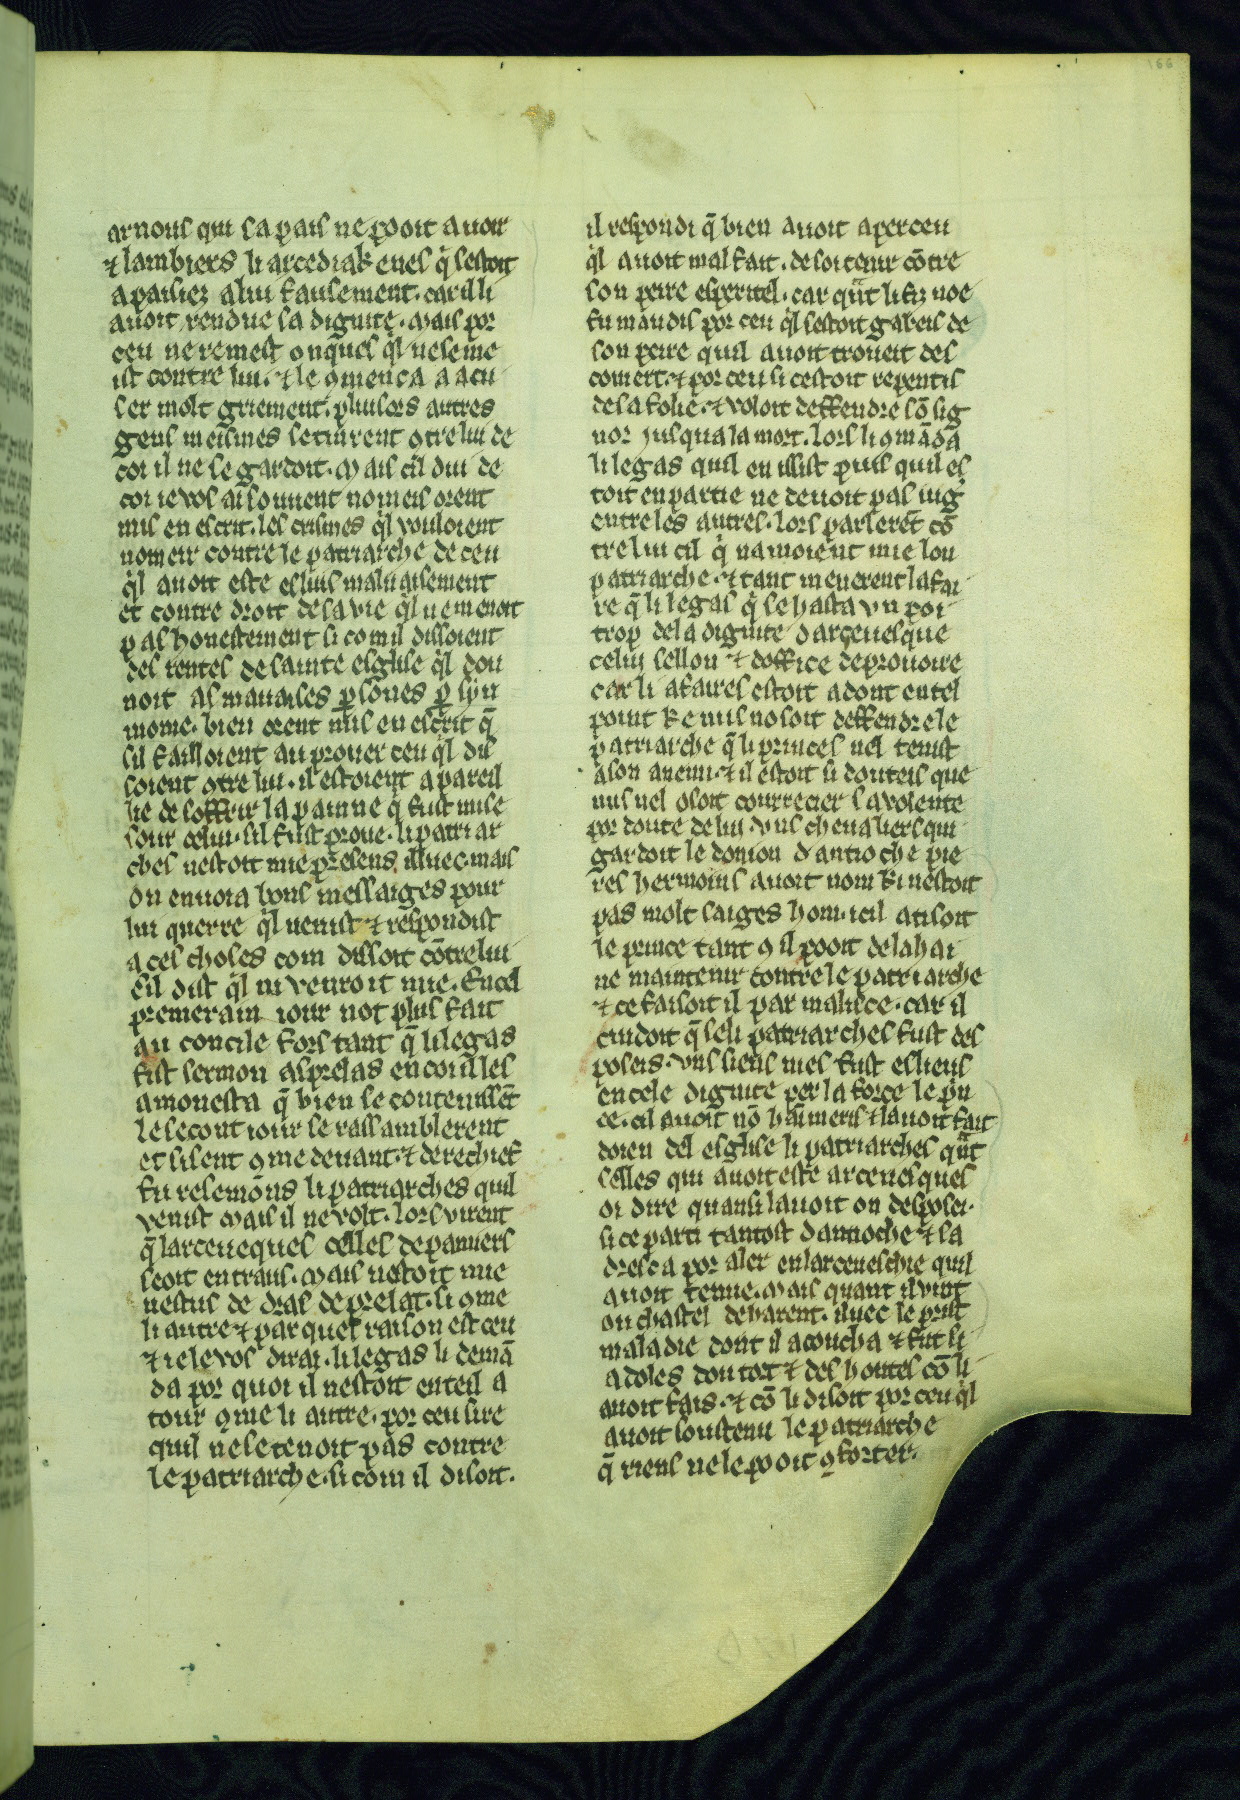 arnous qui sa pais ne pooit auoir
⁊ lambiers li arcediakenes q̃ sestoit
apaisiez a lui fausement. car il li
auoit rendue sa dignite. mais por
ceu ne remest onques ql̃ ne se me
ist contre lui. ⁊ le ꝯmenca a acu
ser molt griement. pluisors autres
gens meismes se tinrent ꝯtre lui de
coi il ne se gardoit. mais cil dui de
coi ie vos ai souuent nomeis orent
mis en escrit. les crismes ql̃ vouloient
nomeir contre le patriarche de ceu
ql̃ auoit este esliuis maluaisement
et contre droit de sa vie ql̃ ne menoit
pas honestement si com il dissoient
des rentes de sainte esglise ql̃ don
noit as mauaises ꝑsones ꝑ syn
monie. bien orent mis en escrit q̃
sil failloient au prouer ceu ql̃ dis
soient ꝯtre lui. il estoient apareil
lie de soffrir la painne q̃ fust mise
sour celui. sil fust proue. li patriar
ches nestoit mie presens illuec. mais
on enuoia bons messaiges pour
lui querre ql̃ uenist ⁊ respondist
a ces choses com dissoit cõtre lui
Eil dist ql̃ ni venroit mie. En cel
premerain iour not plus fait
au concile fors tant q̃ li legas
fist sermon as prelas en cui il les
amonesta q̃ bien se contenissẽt
Le secont iour se rassamblerent
et sisent ꝯme deuant. ⁊ de rechief
fu resemõns li patriarches quil
venist mais il ne volt. lors virent
q̃ larceueques celles de panuers
seoit en traus. mais nestoit mie
uestus de dras de prelat. si ꝯme
li autre ⁊ par quel raison est ceu
⁊ ie le vos dirai. li legas li demã
da por quoi il nestoit en teil a
tour ꝯme li autre. por ceu sire
quil ne se tenoit pas contre
le patriarche. si com il disoit.
il respondi q̃ bien auoit aperceu
ql̃ auoit mal fait. de soi tenir cõtre
son peire esperitel. car qñt li fiz noe
fu maudis por ceu ql̃ sestoit gabeis de
son peire quil auoit troueit des
couert. ⁊ por ceu si cestoit repentis
de sa folie. ⁊ voloit deffendre sõ sig
nor iusqua la mort. lors li ꝯmãda
li legas quil en issist puis quil es
toit en partie ne deuoit pas iug̃
entre les autres. lors parlerẽt cõ
tre lui cil q̃ namoient mie lou
patriarche. ⁊ tant menerent lafai
re q̃ li legas q̃ se hasta vn poi
trop de la dignite darceuesque
celui sellon ⁊ doffice de prouoire
car li afaires estoit adont en tel
point ke nuis nosoit deffendre le
patriarche q̃ li princes nel tenist
a son anemi. ⁊ il estoit si douteis que
nus nel osoit courrecier sa volente
por doute de lui. vns cheualiers qui
gardoit le donion dantioche pie
res hermoins auoit nom ki nestoit
pas molt saiges hom. icil atisoit
le prince tant ꝯ il pooit de la hai
ne maintenir contre le patriarche
⁊ ce faisoit il par malisce. car il
cuidoit q̃ se li patriarches fust des
poseis. vns siens nies fust eslieus
en cele dignite per la force le prin
ce. cil auoit nõ haũmeris ⁊ lauoit fait
doien del esglise li patriarches qñt
selles qui auoit este arceuesques
oi dire quansi lauoit on desposei.
si ce parti tantost dantioche ⁊ sa
dresca por aler en larceueschie quil
auoit tenue. mais quant il vint
ou chastel de harent. iluec le prist
maladie dont il acoucha ⁊ fut si
adoles dou tort ⁊ des hontes cõ li
auoit fais. ⁊ cõ li disoit por ceu ql̃
auoit soustenu le patriarche
q̃ riens ne le pooit ꝯforter.